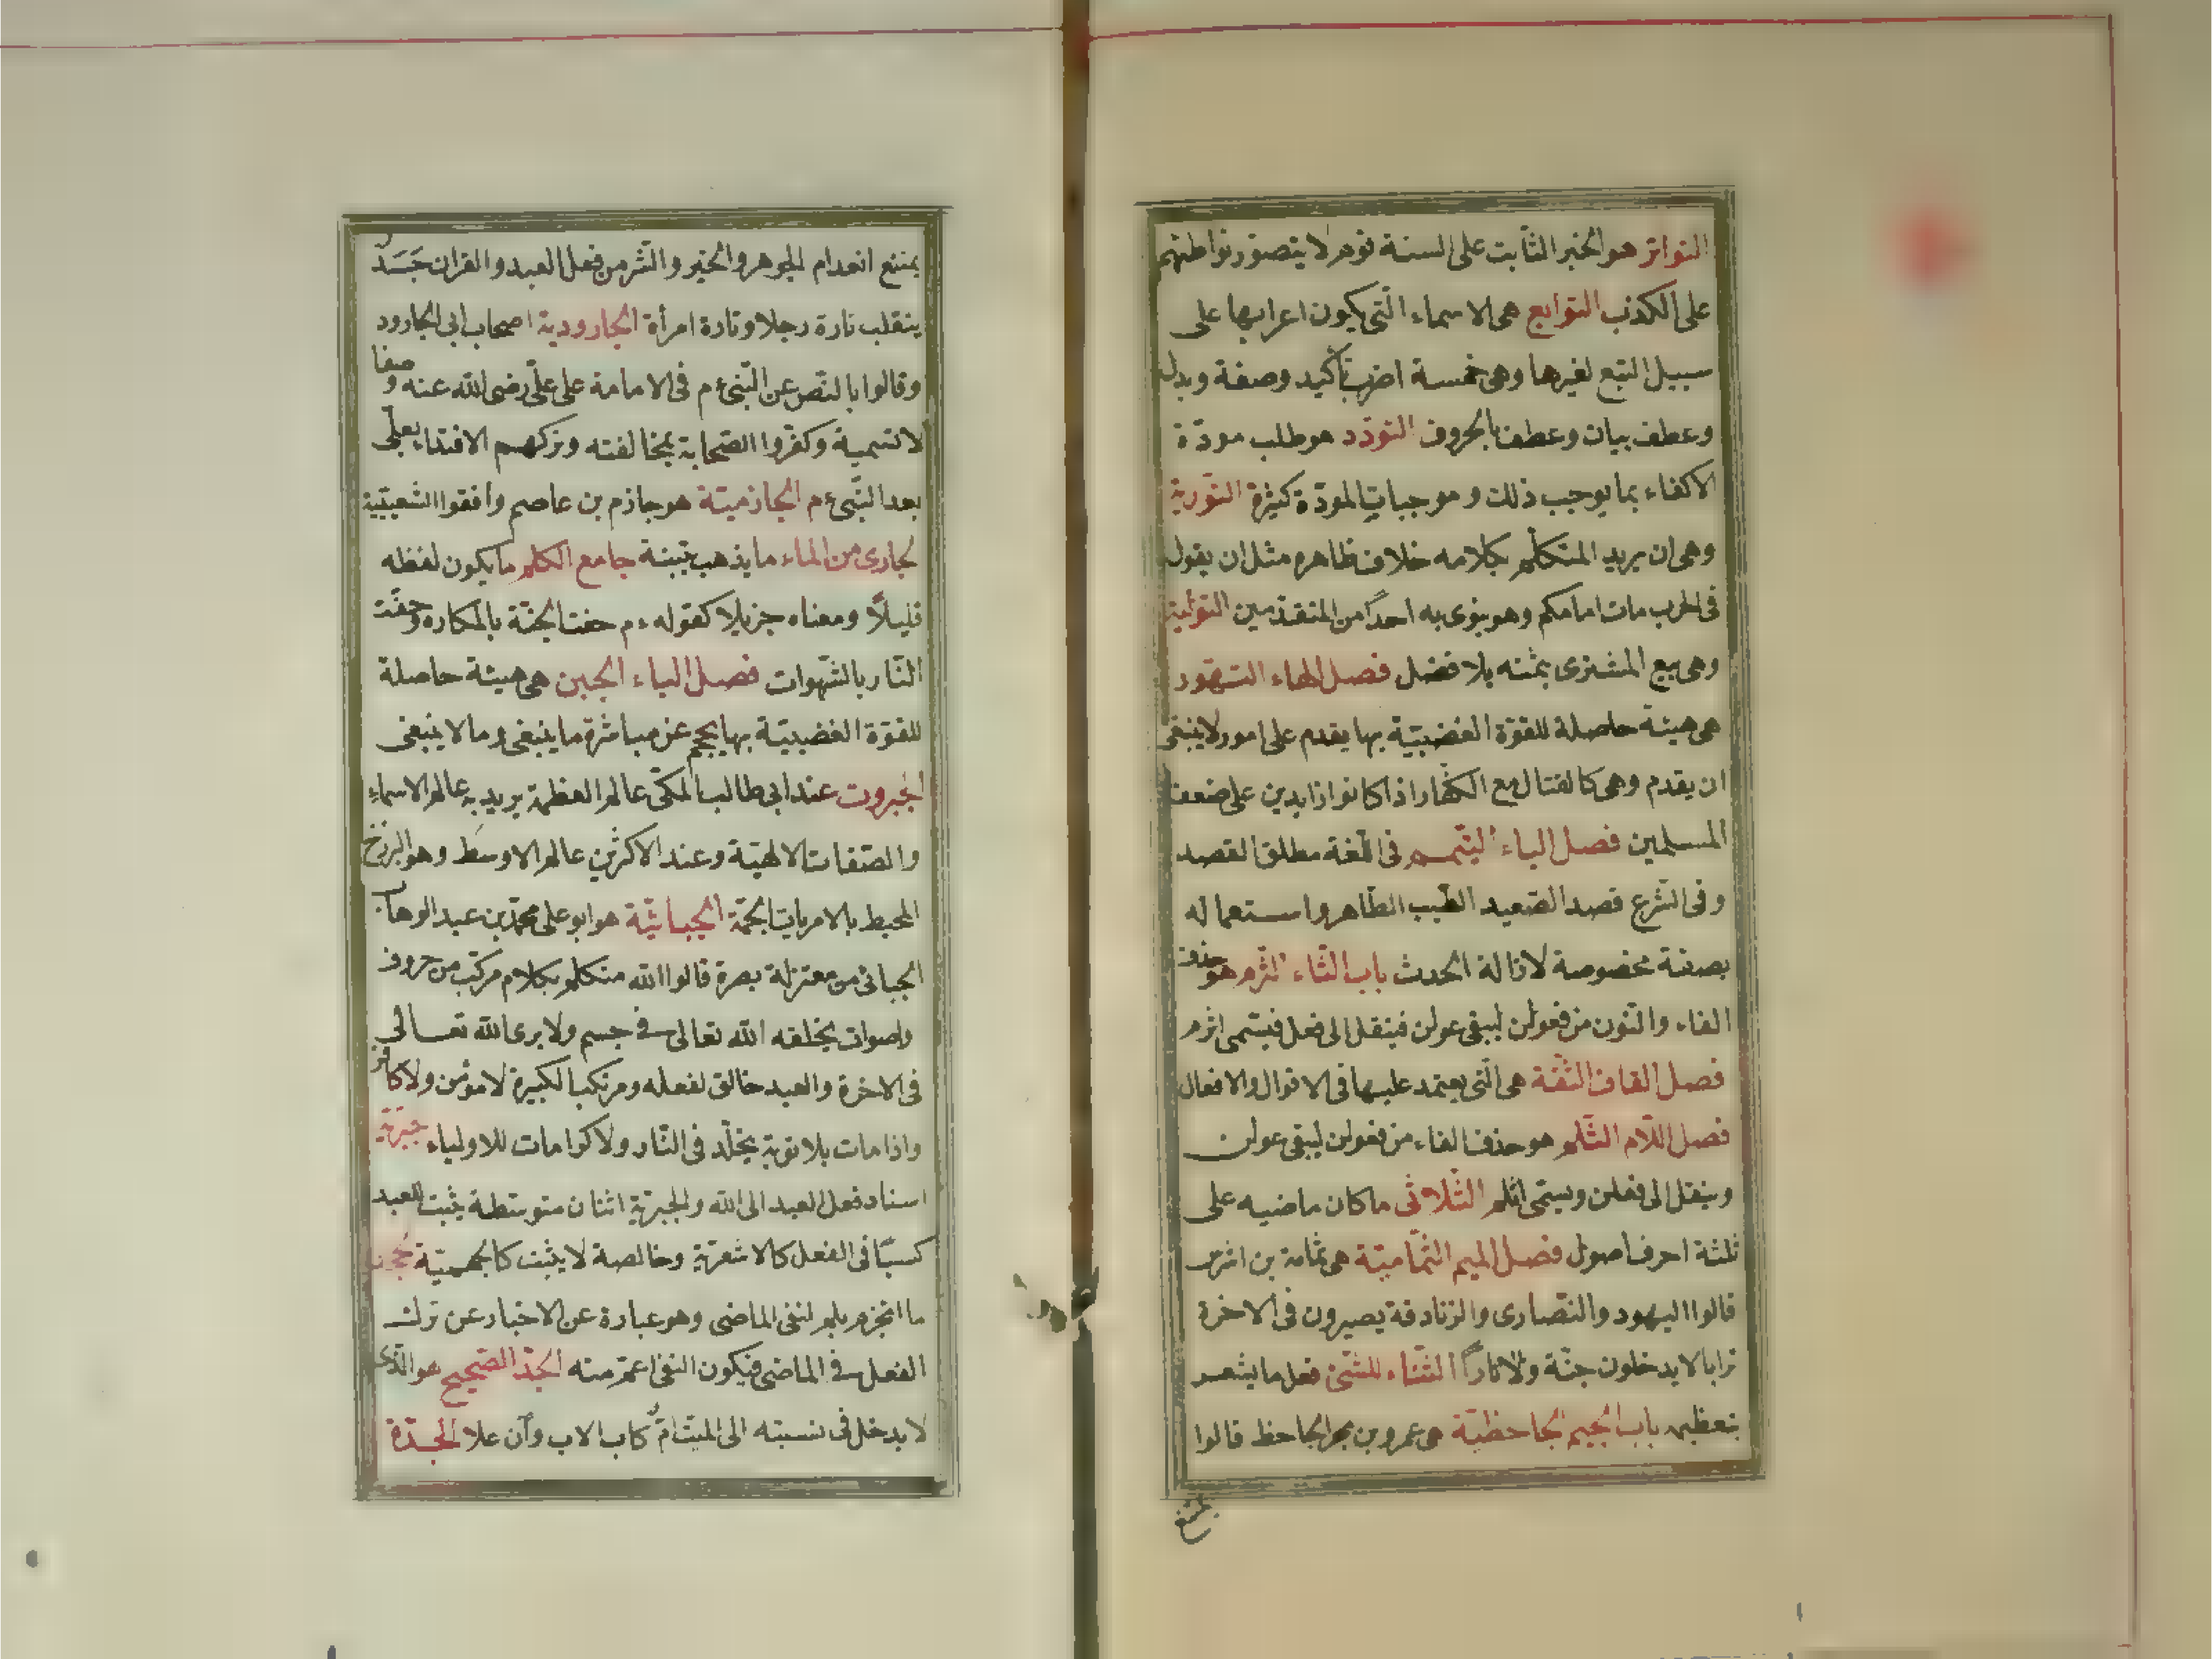 التواتر هو الخبر الثابت على السنة قوم لا يتصور تواطئهم
على الكذب التوابع هى الاسماء التى يكون اعرابها على
سبيل التبع لغيرها وهى خمسة اضرب تأكيد وصفة وبدل
وعطف بيان وعطف بالحروف التودد هو طلب مودة
الاكفاء بما يوجب ذلك وموجبات المودة كثيرة التورية
وهى ان يريد المتكلم بكلامه خلاف ظاهره مثل ان يقول
فى الحرب مات امامكم وهو ينوى به احدًا من المتقدمين التولية
وهى بيع المشترى بثمنه بلا فضل فصل الهاء التهور
هى هيئة حاصلة للقوة الغضبية بها يقدم على امور لا ينبغى
ان يقدم وهى كالقتال مع الكفار اذا كانوا زايدين على ضعف
المسلمين فصل الياء التيمم فى اللغة مطلق القصد
وفى الشرع قصد الصعيد الطيب الطاهر واستعماله
بصفة مخصوصة لازالة الحدث باب الثاء الثرم هو حذف
الفاء والنون من فعولن ليبقى عولن فينقل الى فعل فيسمى اثرم
فصل القاف الثقة هى التى يعتمد عليها فى الاقوال والافعال
فصل اللام الثلم هو حذف الفاء من فعولن ليبقى عولن
وينقل الى فعلن ويسمى اثلم الثلاثى ما كان ماضيه على
ثلثة احرف اصول فصل الميم الثمامية هى ثمامة بن اشرس
قالوا اليهود والنصارى والزنادقة يصيرون فى الاخرة
ترابا لا يدخلون جنة ولا نارًا الثناء للشئ فعل ما يشعر
بتعظيمه باب الجيم الجاحظية هى عمرو بن بحر الجاحظ قالوا
يمتنع
يمتنع انعدام الجوهر والخير والشر من فعل العبد والقران جَسَدٌ
ينقلب تارة رجلا وتارة امرأة الجارودية اصحاب ابى الجارود
وقالوا بالنص عن النبى ءم فى الامامة على على رضى الله عنه وصفا
لا تسمية وكفروا الصحابة بمخالفته وتركهم الاقتداء بعلى
بعد النبى ءم الجازمية هو جازم بن عاصم وافقوا الشعيبية
لجارى من الماء ما يذهب بتبنة جامع الكلم ما يكون لفظه
قليلاً ومعناه جزيلا كقوله ءم حفت الجنة بالمكاره وحفت
النار بالشهوات فصل الباء الجبن هى هيئة حاصلة
للقوة الغضبية بها يحجم عن مباشرة ما ينبغى وما لا ينبغى
الجبروت عند ابى طالب المكى عالم العظمة يريد به عالم الاسماء
والصفات الالهية وعند الاكثرين عالم الاوسط وهو البرزخ
المحيط بالامريات الجمة الجبائية هو ابو على محمد بن عبد الوهاب
الجبائى من معتزلة بصرة قالوا الله متكلم بكلام مركب من حروف
واصوات يخلقه الله تعالى فى جسم ولا يرى الله تعالى
فى الاخرة والعبد خالق لفعله ومرتكب الكبيرة لا مؤمن ولا كافر
واذا مات بلا توبة يخلد فى النار ولا كرامات للاولياء جبرية
اسناد فعل العبد الى الله والجبرية اثنان متوسطة يثبت للعبد
كسبًا فى الفعل كالاشعرية وخالصة لا يثبت كالجهمية
ما انجزم بلم لنفى الماضى وهو عبارة عن الاخبار عن ترك
الفعل فى الماضى فيكون النفى اعم منه الجد الصحيح هو الذى
لا يدخل فى نسبته الى الميت ام كاب الاب وان علا الجدة